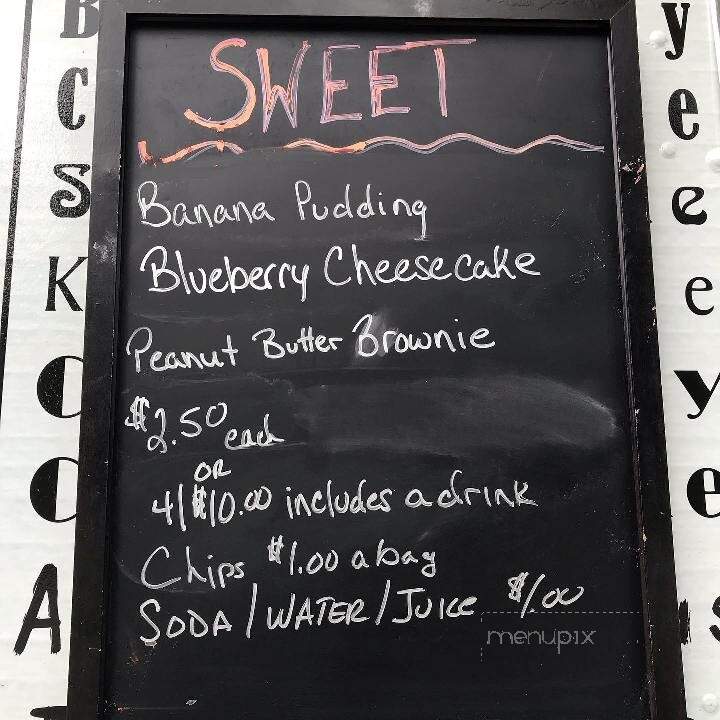 SWEET
Banana Pudding
Blueberry Cheesecake
Peanut Butter Brownie
$2.50 each
OR
4/$10.00 includes a drink
Chips $1.00 a bag
SODA/WATER/JUICE $1.00
menupix